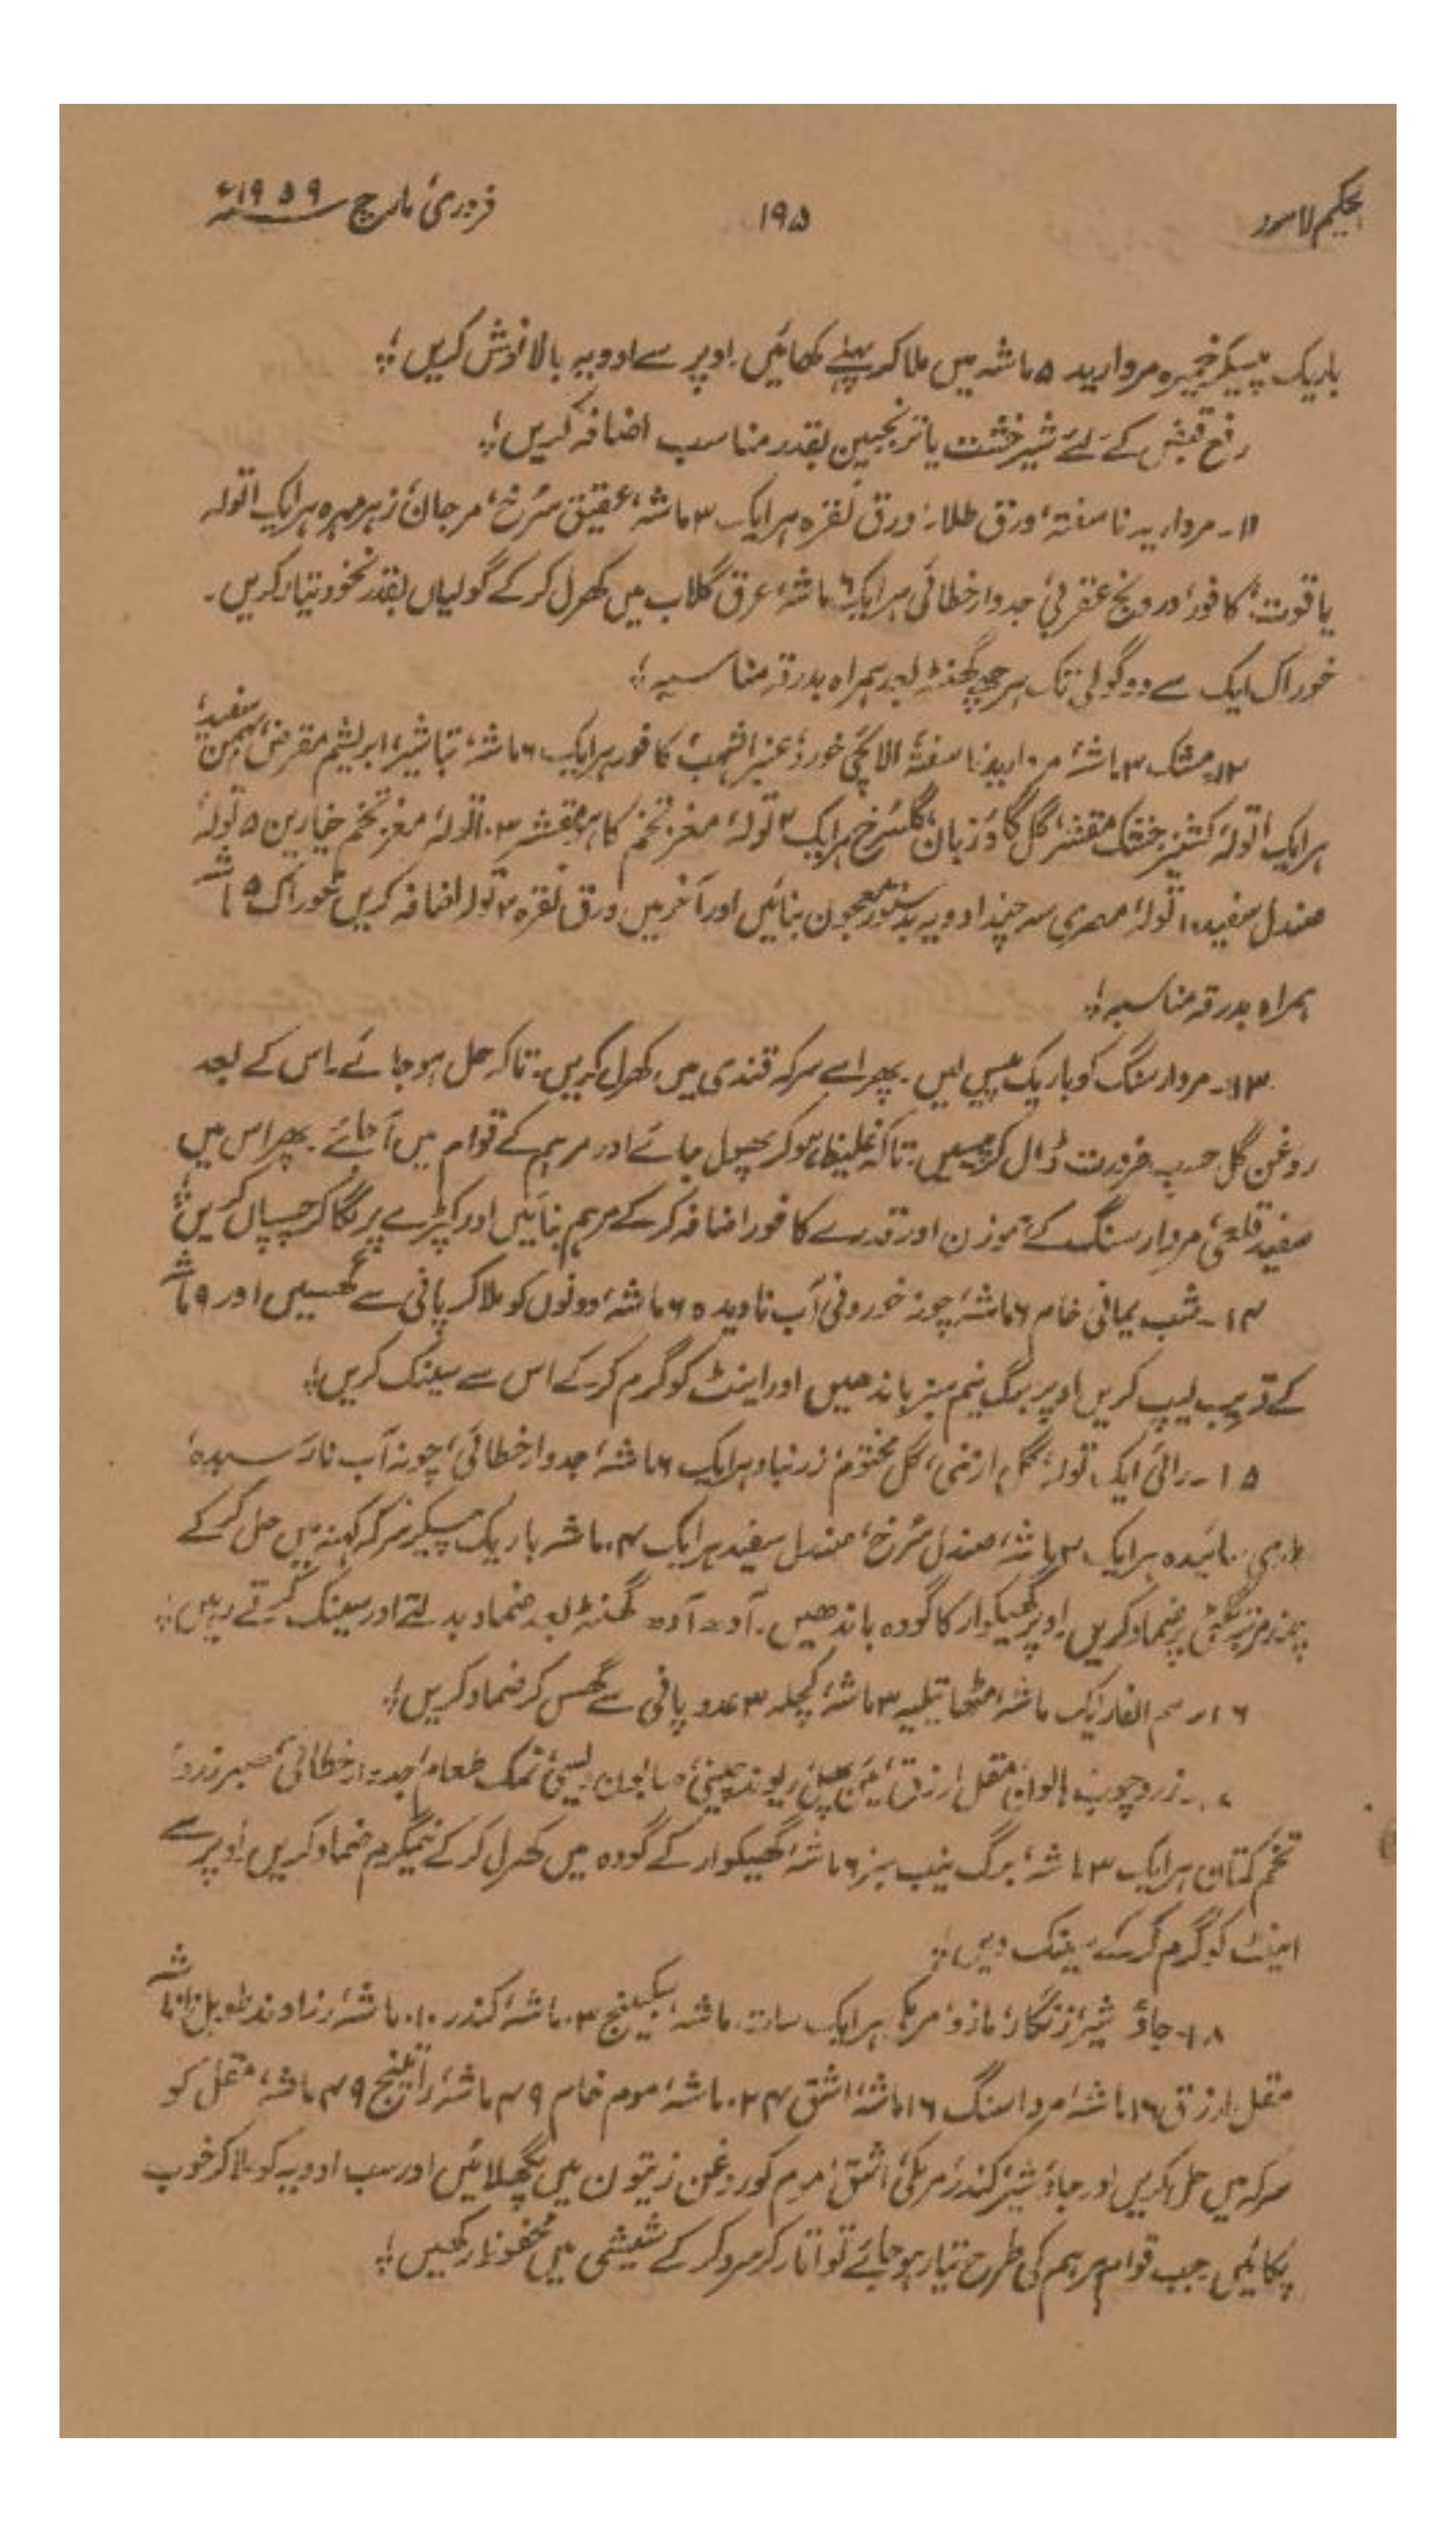 الحکیم لاہور
۱۹۵
فروری، مارچ ۱۹۵۹ء
باریک پیسکر خمیرہ مروارید ۵ ماشہ میں ملا کر پہلے کھائیں۔ اوپر سے ادویہ بالا نوش کریں؛
رفع قبض کے لئے شیر خشت یا ترنجبین بقدر مناسب اضافہ کریں؛
۱۱۔ مروارید ناسفتہ، ورق طلاء، ورق نقرہ ہر ایک ۳ ماشہ، عقیق سُرخ، مرجان، زہر مہرہ ہر ایک ا تولہ
یاقوت، کافور، درونج عقربی، جدوار خطائی ہر ایک ۶ ماشہ، عرق گلاب میں کھرل کر کے گولیاں بقدر نخود تیار کریں۔
خوراک ایک سے دو گولی تک ہر چھ گھنٹہ بعد ہمراہ بدرقہ مناسبہ؛
۱۲۔ مشک ۳ ماشہ، مروارید ناسفتہ، الائچی خورد، عنبر اشہب، کافور ہر ایک ۶ ماشہ، تباشیر، ابریشم مقرض، بہمن سفید،
ہر ایک ا تولہ، کشنیز خشک مقشر، گل گاؤزبان، گلسُرخ ہر ایک ۲ تولہ، مغز تخم کاہو مقشر ۳ تولہ، مغز تخم خیارین ۵ تولہ،
صندل سفید ۱۰ تولہ، مصری سہ چند ادویہ بدستور معجون بنائیں اور آخر میں ورق نقرہ ۲ تولہ اضافہ کریں خوراک ۵ ماشہ
ہمراہ بدرقہ مناسبہ؛
۱۳۔ مردار سنگ کو باریک پیس لیں۔ پھر اسے سرکہ قندی میں کھرل کریں۔ تا کہ حل ہو جائے۔ اس کے بعد
روغن گل حسب ضرورت ڈال کر پیسیں۔ تا کہ غلیظ ہو کر پھول جائے اور مرہم کے قوام میں آ جائے۔ پھر اس میں
سفیدہ قلعی، مردار سنگ کے ہموزن اور قدرے کافور اضافہ کر کے مرہم بنائیں اور کپڑے پر لگا کر چسپاں کریں؛
۱۴۔ شب یمانی خام ۶ ماشہ، چونہ خوردنی آب نادیدہ ۶ ماشہ، دونوں کو ملا کر پانی سے گھسیں اور ۹ ماشہ
کے قریب لیپ کریں اوپر برگ نیم سبز باندھیں اور اینٹ کو گرم کر کے اس سے سینک کریں؛
۱۵۔ رائی ایک تولہ، گل ارمنی، گل مختوم، زرنباد ہر ایک ۶ ماشہ، جدوار خطائی، چونہ آب نارسیدہ،
سائیدہ ہر ایک ۳ ماشہ، صندل سُرخ، صندل سفید ہر ایک ۴ ماشہ باریک پیسکر سرکہ کہنہ میں حل کر کے
گلٹی پر ضماد کریں۔ اوپر گھیکوار کا گودہ باندھیں۔ آدھ آدھ گھنٹہ بعد ضماد بدلتے اور سینک کرتے رہیں؛
۱۶۔ سم الفار ایک ماشہ، مٹھا تیلیہ ۳ ماشہ، کچلہ ۳ عدد پانی سے گھس کر ضماد کریں؛
۱۷۔ زرد چوب، ہالوان، مقل ارزق، مین پھل، ریوند چینی، صابون دیسی، نمک طعام، جدوار خطائی، صبر زرد،
تخم کتان ہر ایک ۳ ماشہ، برگ نیب سبز ۶ ماشہ، گھیکوار کے گودہ میں کھرل کر کے نیمگرم ضماد کریں۔ اوپر سے
اینٹ کو گرم کر کے سینک دیں؛
۱۸۔ جاؤ شیر، زنگار، مازو، مرمکی ہر ایک سات ماشہ، سکبینج ۳ ماشہ، کندر ۱۰ ماشہ، زراوند طویل ماشہ
مقل ارزق ۱۶ ماشہ، مرداسنگ ۱۶ ماشہ، اشق ۲۴ ماشہ، موم خام ۴۹ ماشہ، راتینج ۴۹ ماشہ، مقل کو
سرکہ میں حل کریں اور جاؤ شیر، کندر، مرمکی، اشق، موم کو روغن زیتون میں پگھلائیں اور سب ادویہ کو ملا کر خوب
پکائیں جب قوام مرہم کی طرح تیار ہو جائے تو اتار کر سرد کر کے شیشی میں محفوظ رکھیں؛